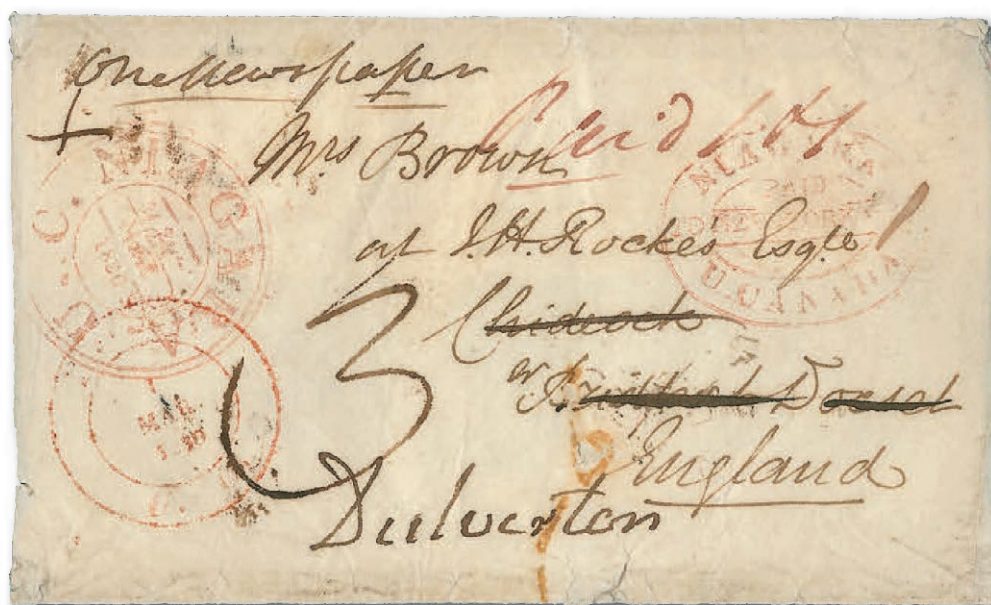 One Newspaper
Paid
Mrs Brown
at J.H. Rockes Esqre
Chideock
nr Bridport Dorset
England
3
Dulverton
U.C. NIAGARA
NIAGARA
PAID
U. CANADA
MAR